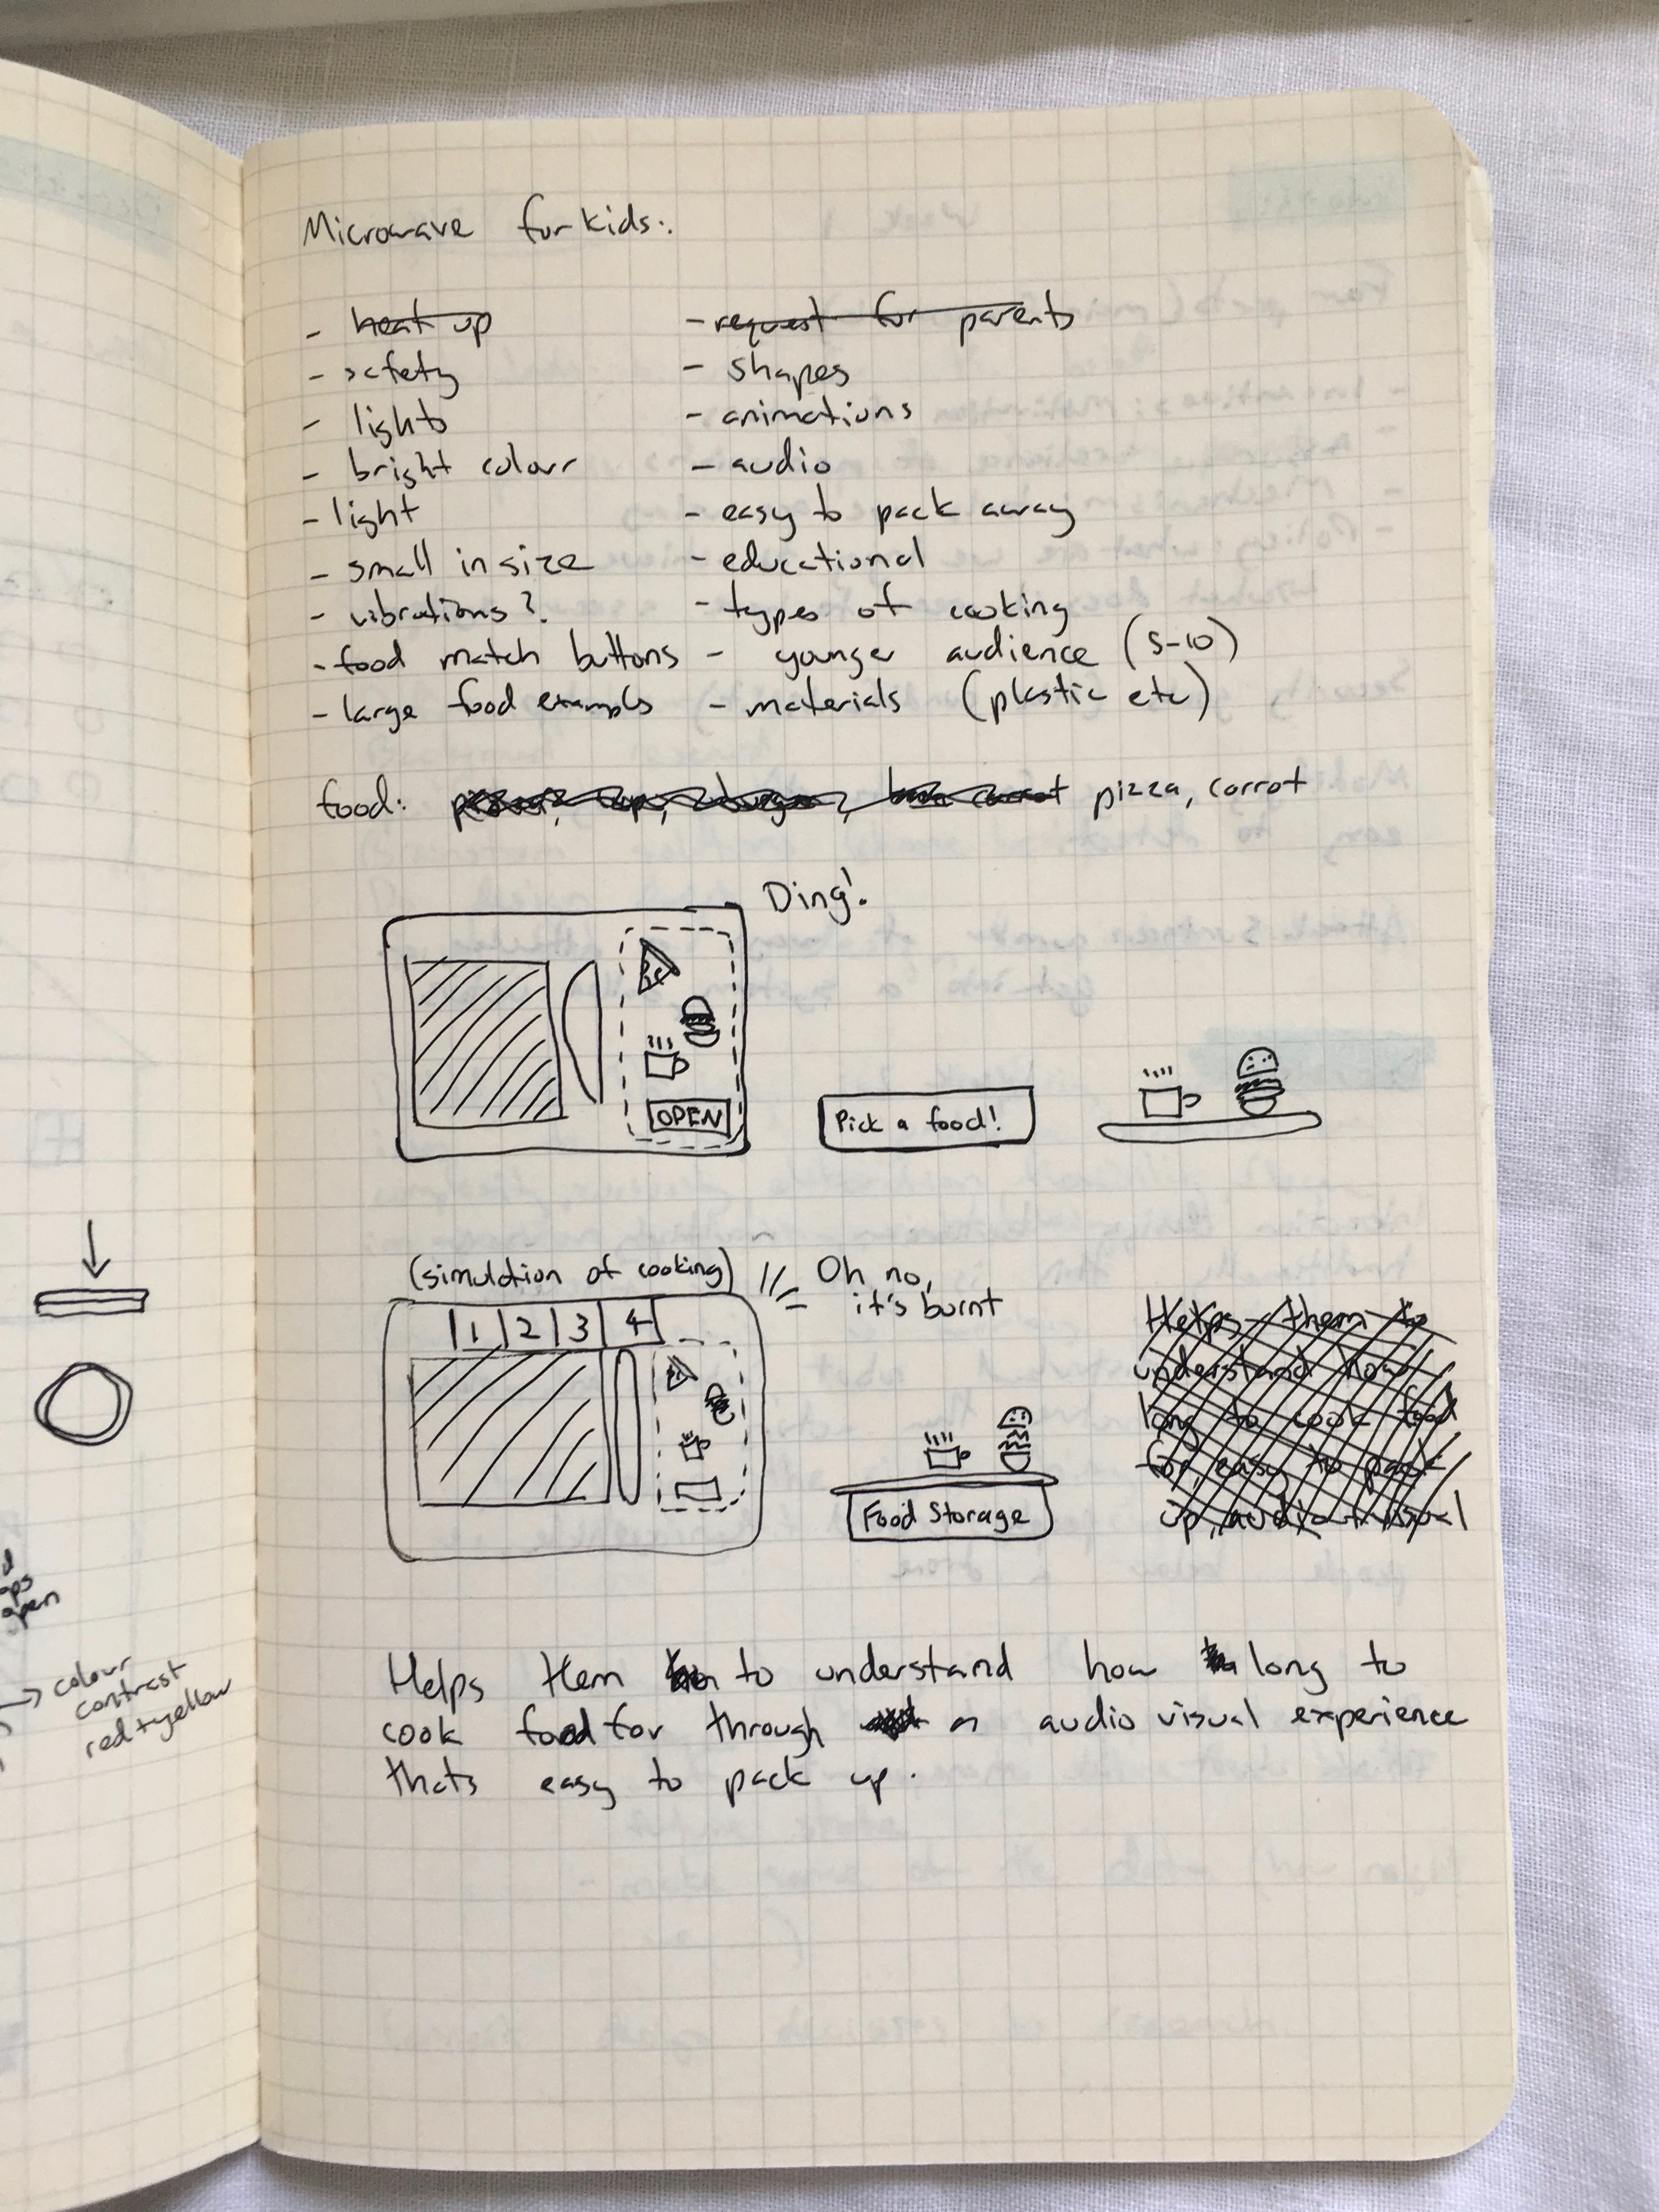 Microwave for kids:
- heat up
- safety
- lights
- bright colour
- light
- small in size
- vibrations?
- food match buttons
- large food examples
- request for parents
- shapes
- animations
- audio
- easy to pack away
- educational
- types of cooking
- younger audience (5-10)
- materials (plastic etc)
food: pizza, carrot
Ding!
OPEN
Pick a food!
(simulation of cooking)
Oh no,
it's burnt
1 2 3 4
Food Storage
Helps them to
understand how
long to cook food
for, easy to pack
up, audio visual
Helps them to understand how long to
cook food for through a audio visual experience
thats easy to pack up.
open
→ colour
contrast
red+yellow